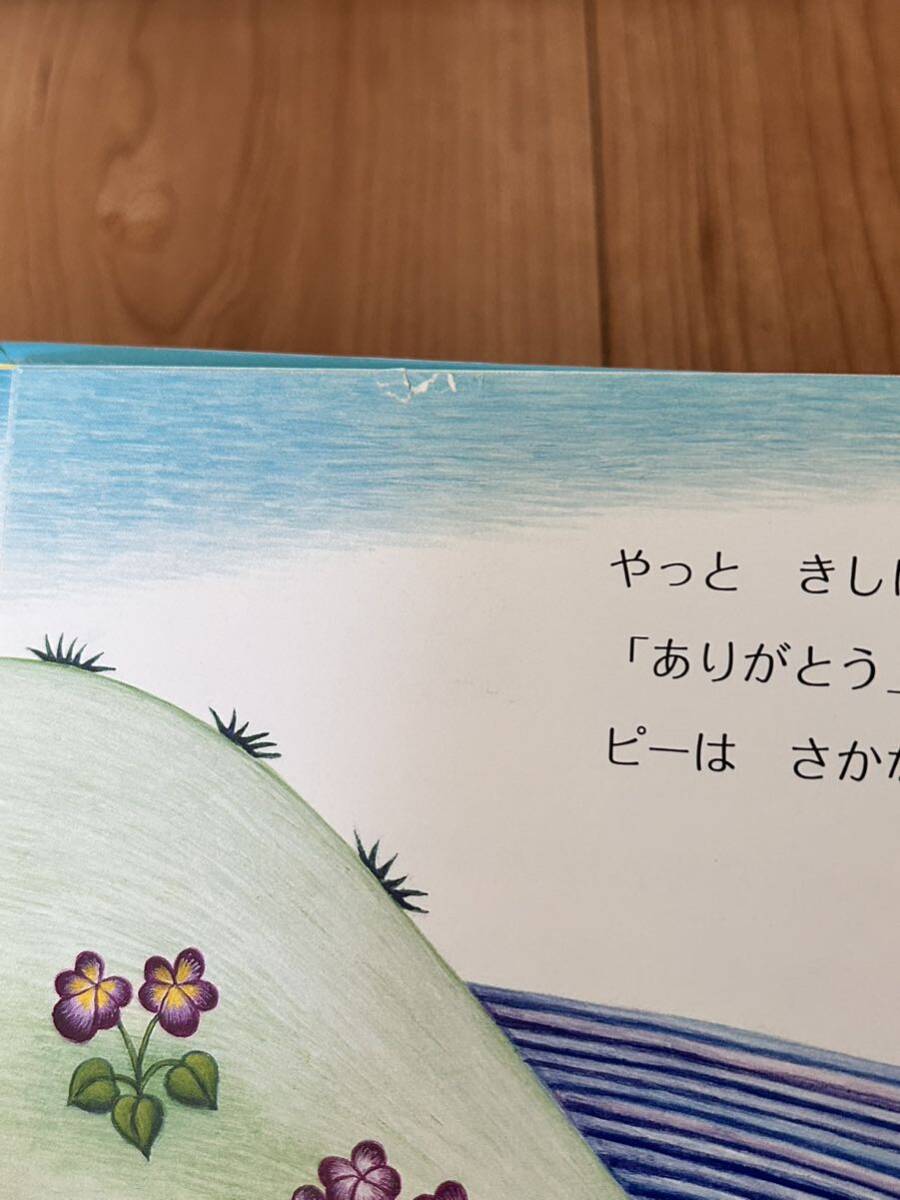 やっと きし
「ありがとう」
ピーは さか